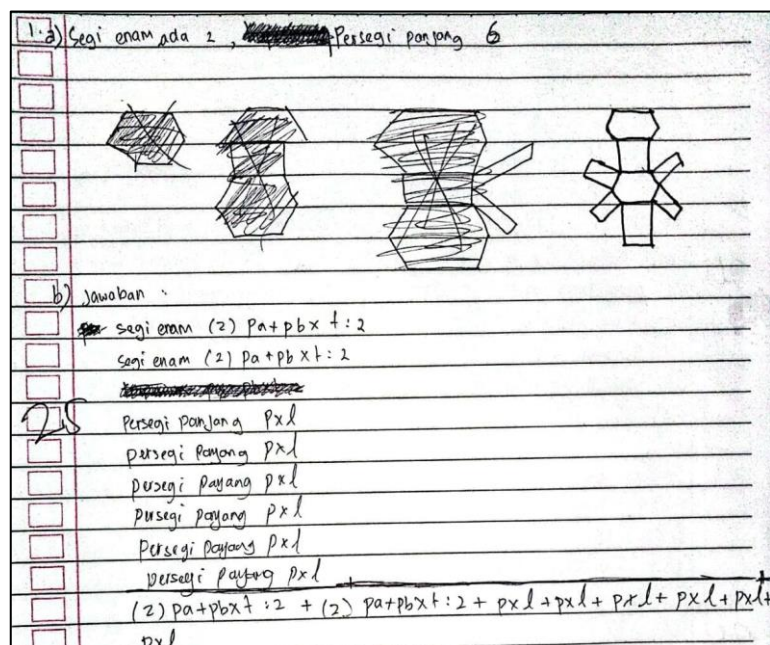 1. a) Segi enam ada 2, Persegi panjang 6
b) Jawaban :
segi enam (2) pa+pb x t : 2
segi enam (2) pa+pb x t : 2
Persegi panjang pxl
persegi payang pxl
persegi payang pxl
persegi payang pxl
Persegi payang pxl
persegi payang pxl +
(2) pa+pbxt : 2 + (2) pa+pbxt : 2 + pxl + pxl + pxl + pxl + pxl +
pxl
25